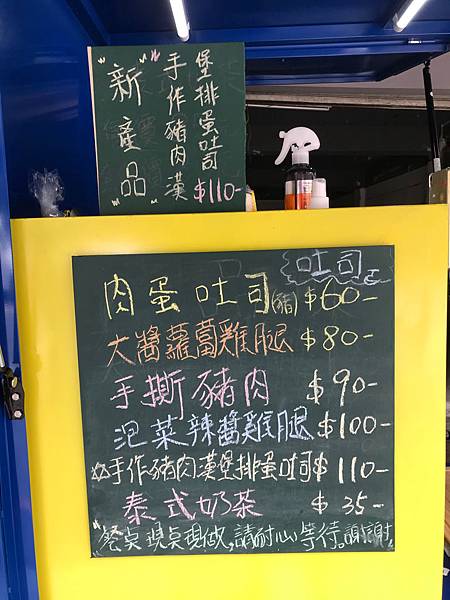 "新產品"
手作豬肉漢
堡排蛋吐司
$110-
吐司
肉蛋吐司(豬) $60-
大醬蘿蔔雞腿 $80-
手撕豬肉 $90-
泡菜辣醬雞腿 $100-
手作豬肉漢堡排蛋吐司 $110-
泰式奶茶 $35-
"餐點現點現做,請耐心等待。謝謝"